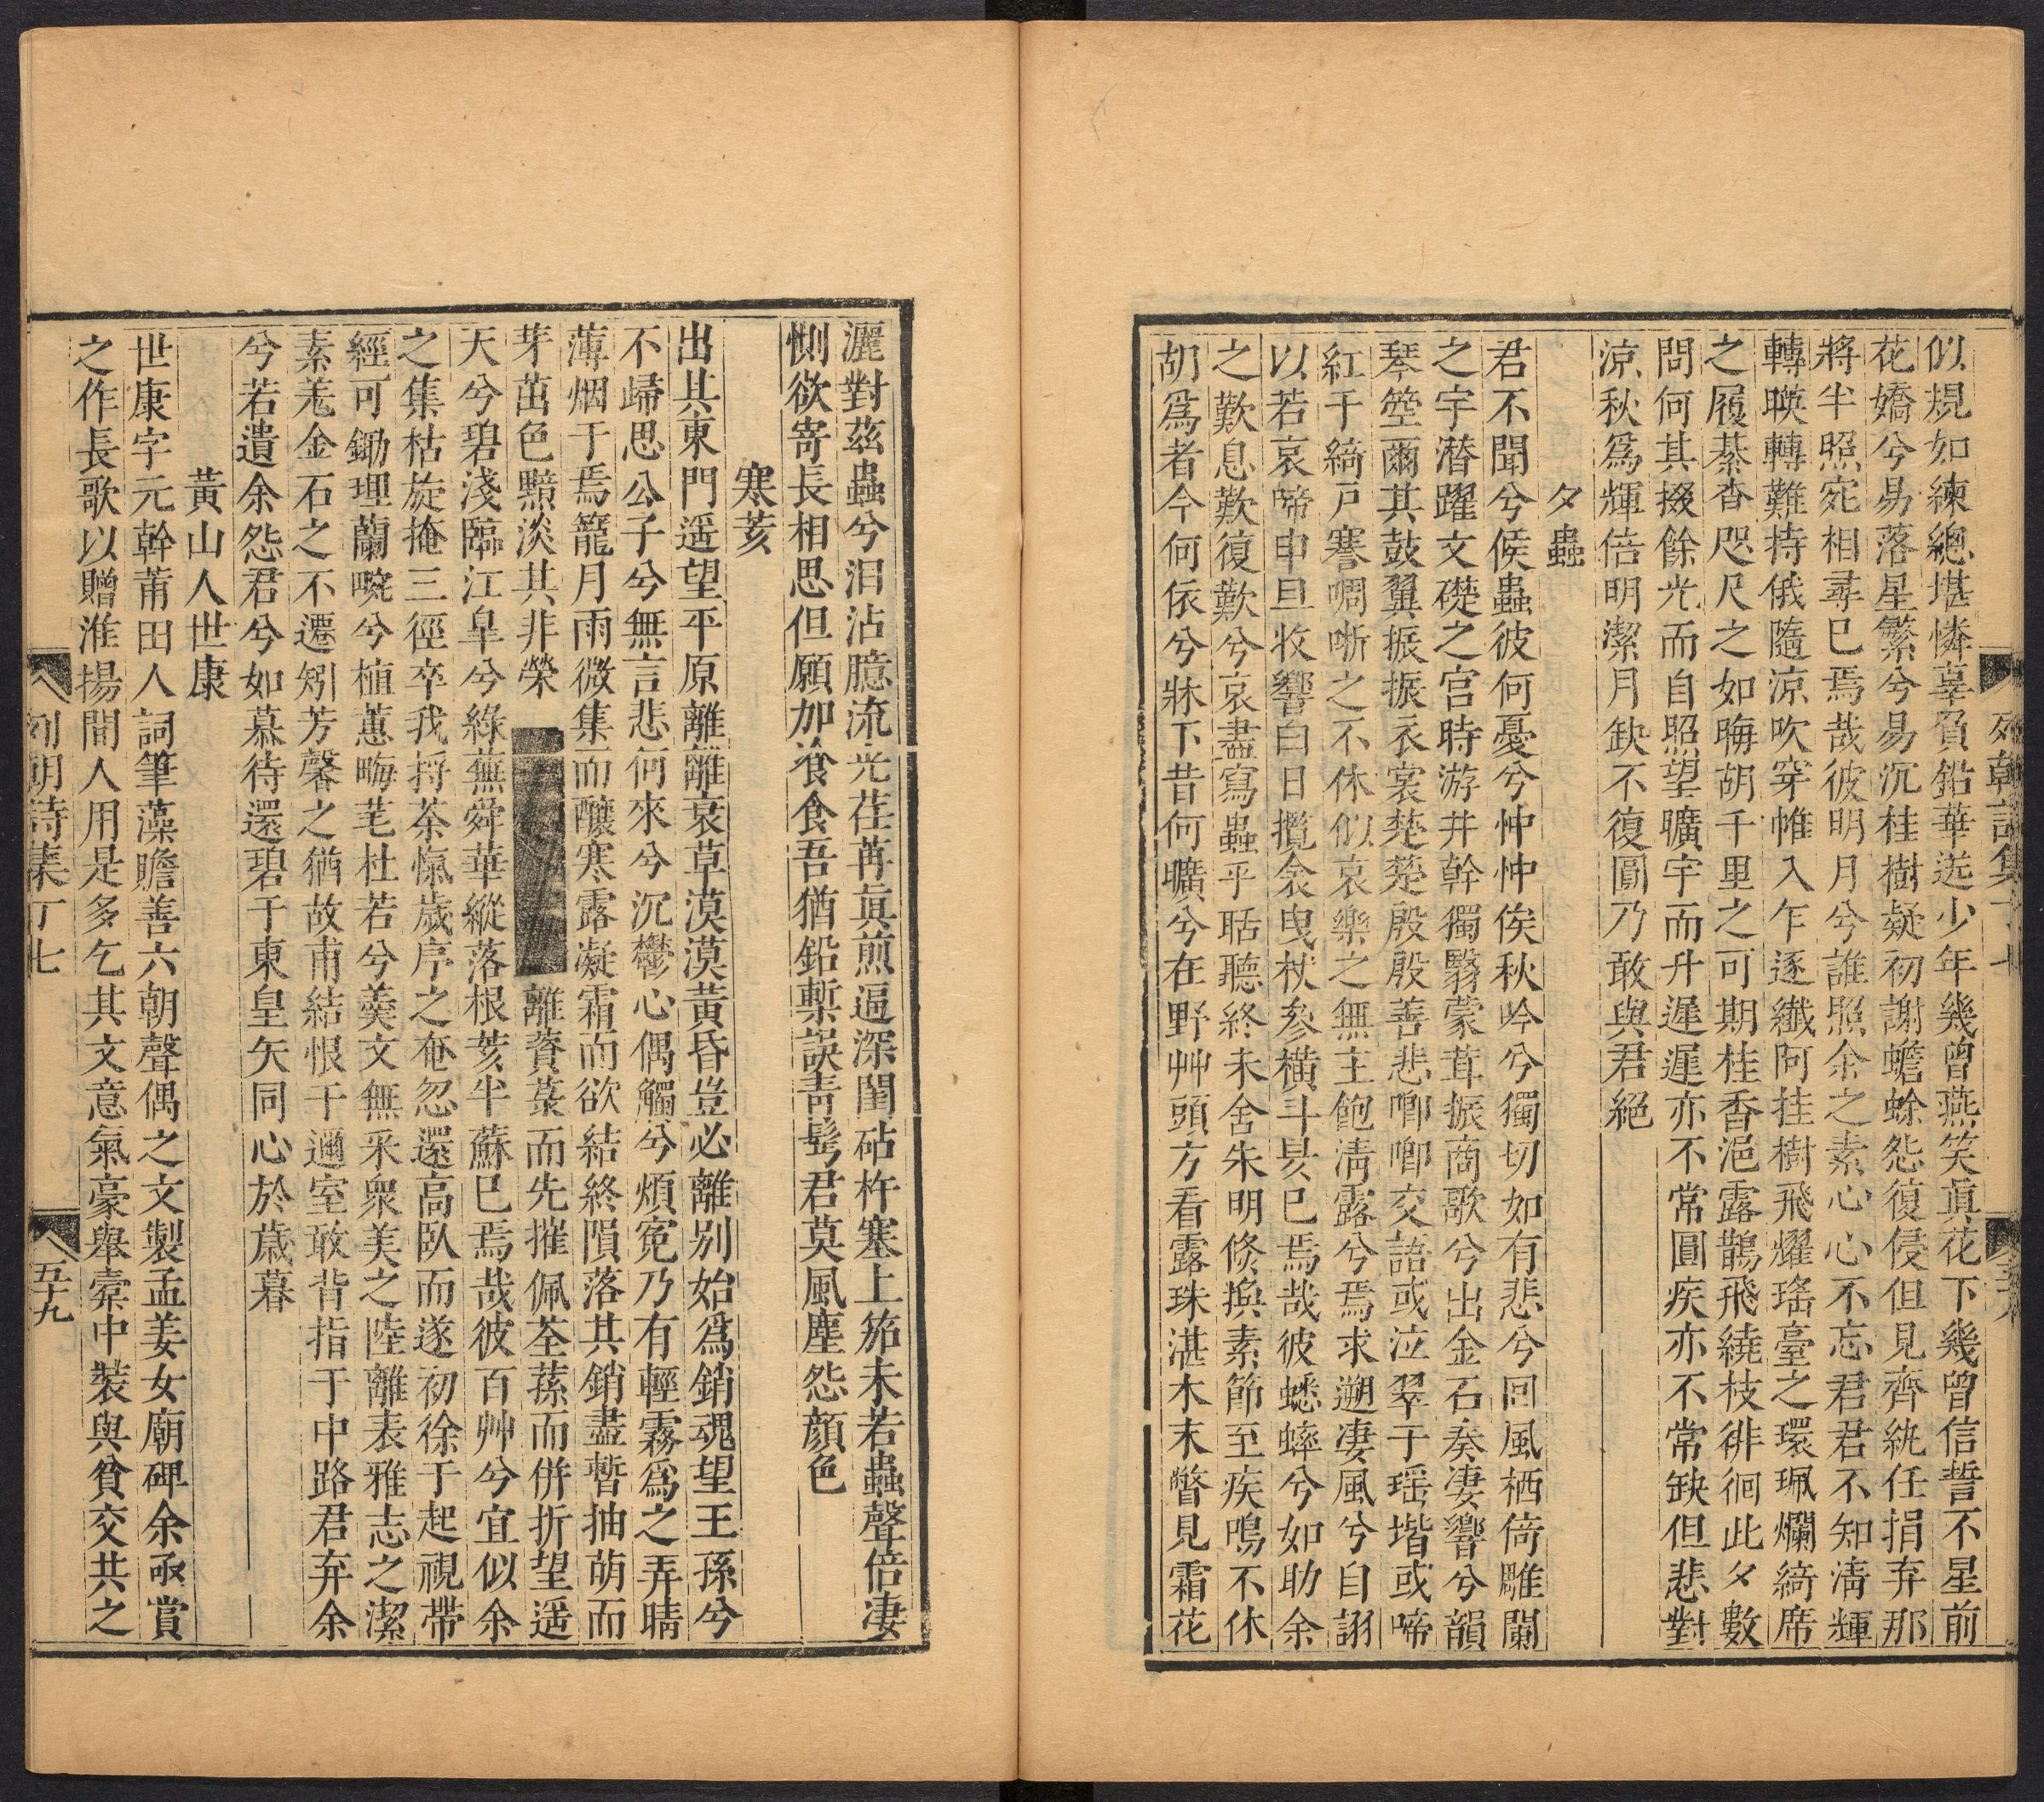 似規如練總堪憐辜負鉛華迸少年幾曾燕笑眞花下幾曾信誓不星前
花嬌兮易落星繁兮易沉桂樹疑初謝蟾蜍怨復侵但見齊紈任捐弃那
將半照宛相尋巳焉哉彼明月兮誰照余之素心心不忘君君不知淸輝
轉暎轉難持俄隨凉吹穿帷入乍逐纖阿挂樹飛耀瑤臺之環珮爛綺席
之履綦杳咫尺之如晦胡千里之可期桂香浥露鵲飛繞枝徘徊此夕數
問何其掇餘光而自照望曠宇而升遲遲亦不常圓疾亦不常缺但悲對
涼秋爲輝倍明潔月缺不復圓乃敢與君絕
夕蟲
君不聞兮侯蟲彼何憂兮忡忡俟秋吟兮獨切如有悲兮回風栖倚雕闌
之宇潛躍文礎之宮時游井幹獨翳蒙茸振商歌兮出金石奏凄響兮韻
琴箜爾其鼓翼振振衣裳楚楚殷殷善悲喞喞交語或泣翠于瑶堦或啼
紅于綺戶謇啁哳之不休似哀樂之無主飽淸露兮焉求遡凄風兮自詡
以若哀啼申旦收響白日攬衾曳杖參橫斗昃巳焉哉彼蟋蟀兮如助余
之歎息歎復歎兮哀盡寫蟲乎聒聽終未舍朱明倏換素節至疾鳴不休
胡爲者今何依兮牀下昔何曠兮在野艸頭方看露珠湛木末瞥見霜花
灑對茲蟲兮泪沾臆流光荏苒眞煎逼深閨砧杵塞上笳未若蟲聲倍凄
惻欲寄長相思但願加飧食吾猶鉛槧誤靑髩君莫風塵怨顔色
寒荄
出其東門遥望平原離離衰草漠漠黃昏豈必離别始爲銷魂望王孫兮
不歸思公子兮無言悲何來兮沉鬱心偶觸兮煩寃乃有輕霧爲之弄晴
薄烟于焉籠月雨微集而釀寒露凝霜而欲結終隕落其銷盡暫抽萌而
芽茁色黯淡其非榮離薋菉而先摧佩荃蓀而併折望遥
天兮碧淺臨江皐兮綠蕪舜華縱落根荄半蘇巳焉哉彼百艸兮宜似余
之集枯旋掩三徑卒我捋荼愾歲序之奄忽還高臥而遂初徐于起視帶
經可鋤埋蘭畹兮植蕙畮芼杜若兮羮文無采衆美之陸離表雅志之潔
素羌金石之不遷矧芳馨之猶故甫結恨于邇室敢背指于中路君弃余
兮若遺余怨君兮如慕待還碧于東皇矢同心於歲暮
黃山人世康
世康字元幹莆田人詞筆藻贍善六朝聲偶之文製孟姜女廟碑余亟賞
之作長歌以贈淮揚間人用是多乞其文意氣豪舉槖中裝與貧交共之
列朝詩集丁七
五十九